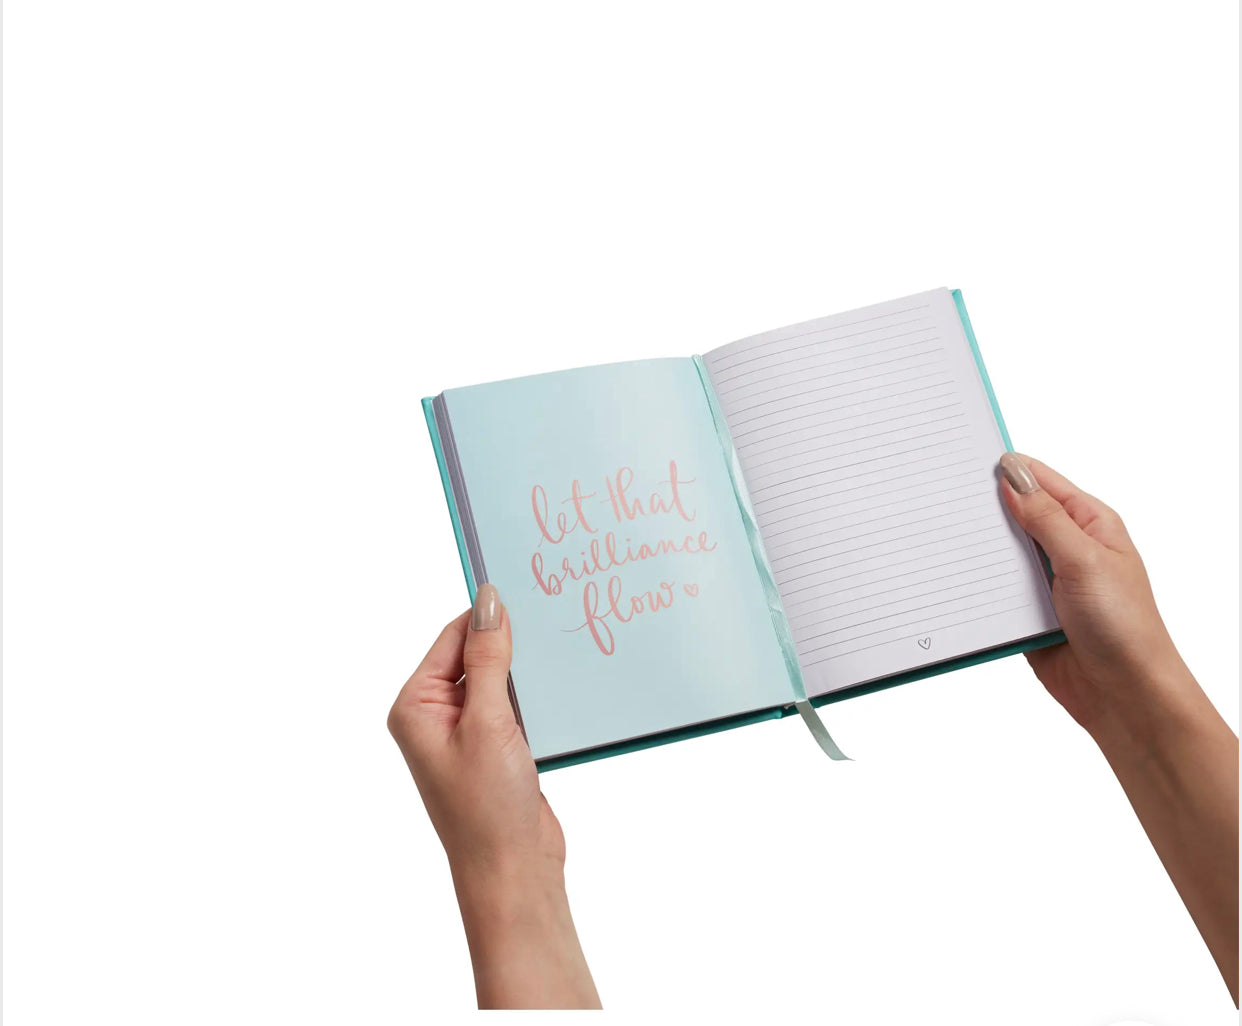 let that
brilliance
flow